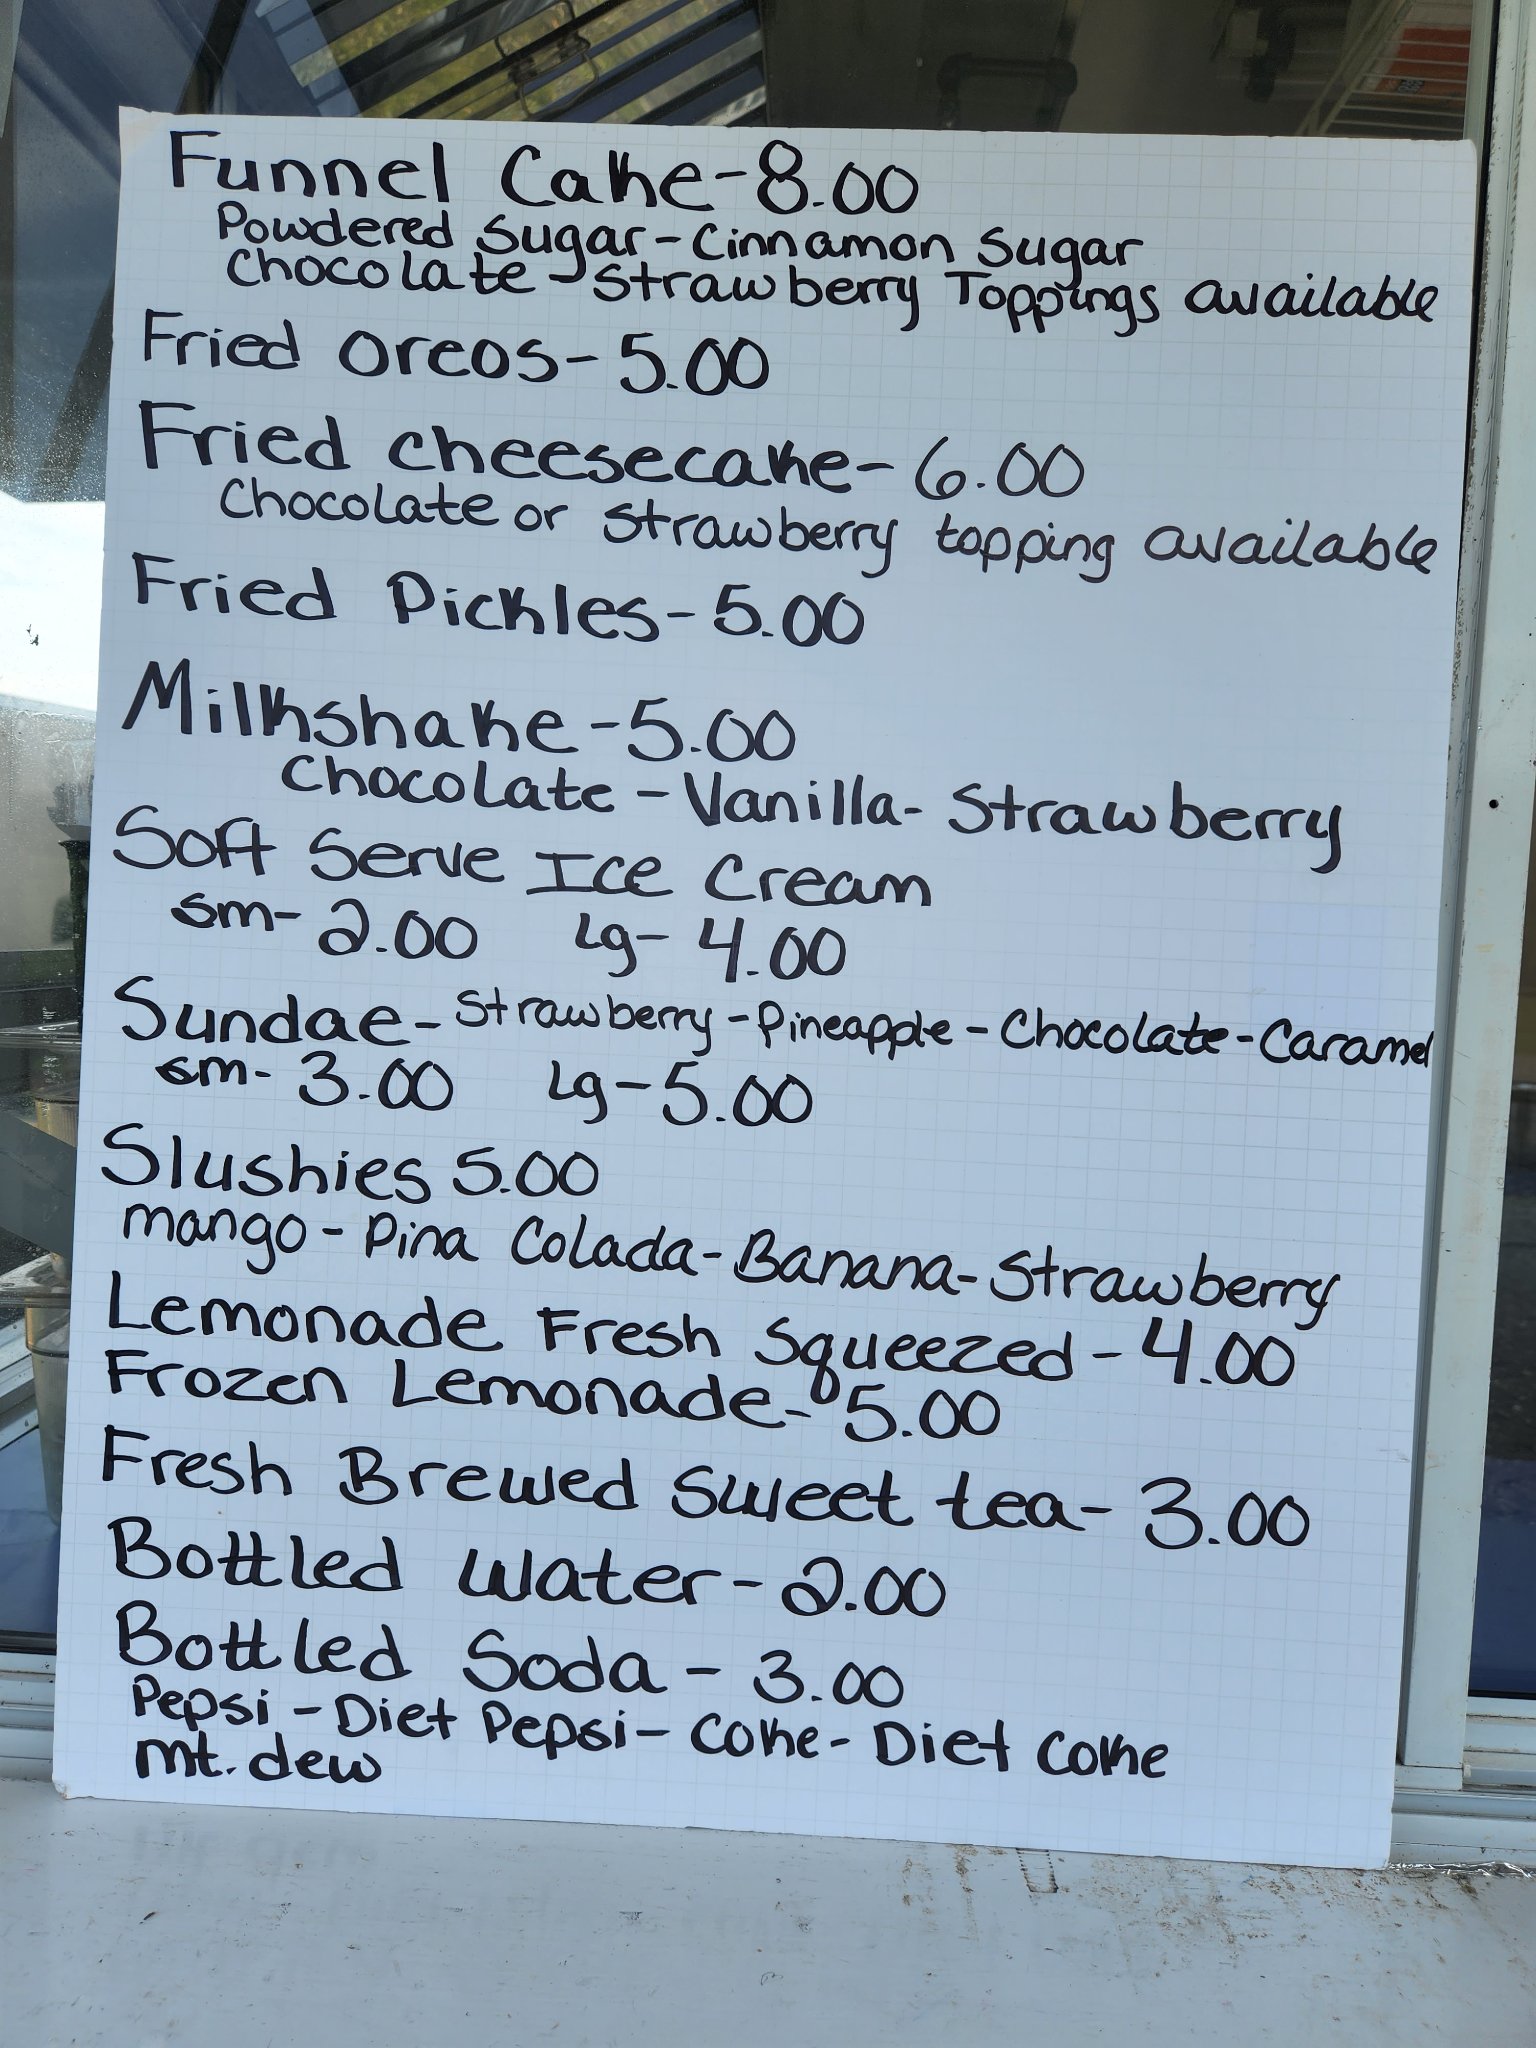 Funnel Cake-8.00
Powdered Sugar-Cinnamon Sugar
Chocolate-Strawberry Toppings available
Fried Oreos-5.00
Fried Cheesecake-6.00
Chocolate or Strawberry topping available
Fried Pickles-5.00
Milkshake-5.00
Chocolate-Vanilla-Strawberry
Soft Serve Ice Cream
sm-2.00 Lg-4.00
Sundae-Strawberry-Pineapple-Chocolate-Caramel
sm-3.00 Lg-5.00
Slushies 5.00
mango-Pina Colada-Banana-Strawberry
Lemonade Fresh Squeezed-4.00
Frozen Lemonade-5.00
Fresh Brewed Sweet tea-3.00
Bottled Water-2.00
Bottled Soda-3.00
Pepsi-Diet Pepsi-Coke-Diet Coke
mt. dew